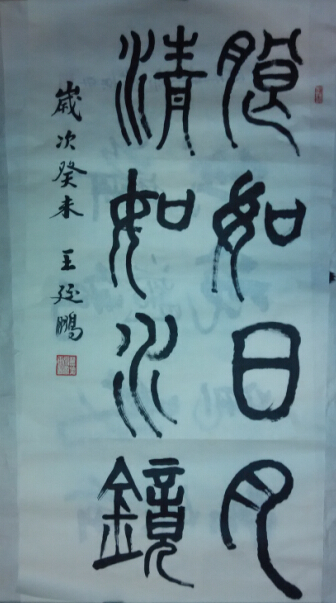 朗如日月
清如水鏡
歲次癸未 王廷鵬